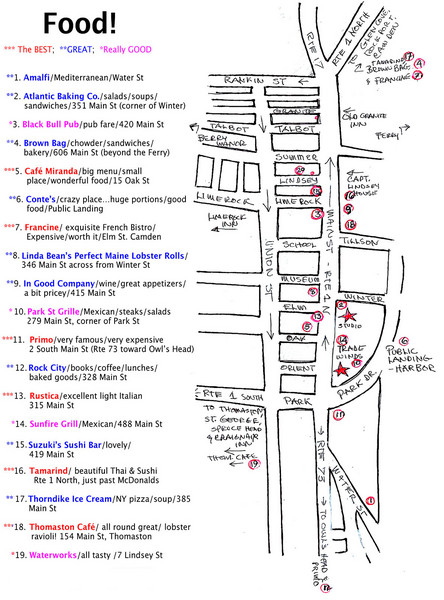 Food!
*** The BEST; **GREAT; *Really GOOD
**1. Amalfi/Mediterranean/Water St
**2. Atlantic Baking Co./salads/soups/
sandwiches/351 Main St (corner of Winter)
*3. Black Bull Pub/pub fare/420 Main St
**4. Brown Bag/chowder/sandwiches/
bakery/606 Main St (beyond the Ferry)
***5. Café Miranda/big menu/small
place/wonderful food/15 Oak St
**6. Conte's/crazy place...huge portions/good
food/Public Landing
***7. Francine/ exquisite French Bistro/
Expensive/worth it/Elm St. Camden
**8. Linda Bean's Perfect Maine Lobster Rolls/
346 Main St across from Winter St
**9. In Good Company/wine/great appetizers/
a bit pricey/415 Main St
*10. Park St Grille/Mexican/steaks/salads
279 Main St, corner of Park St
***11. Primo/very famous/very expensive
2 South Main St (Rte 73 toward Owl's Head)
**12. Rock City/books/coffee/lunches/
baked goods/328 Main St
***13. Rustica/excellent light Italian
315 Main St
*14. Sunfire Grill/Mexican/488 Main St
**15. Suzuki's Sushi Bar/lovely/
419 Main St
***16. Tamarind/ beautiful Thai & Sushi
Rte 1 North, just past McDonalds
**17. Thorndike Ice Cream/NY pizza/soup/385
Main St
***18. Thomaston Café/ all round great/ lobster
ravioli! 154 Main St, Thomaston
*19. Waterworks/all tasty /7 Lindsey St
RTE 17
RTE 1 NORTH
TO GLEN COVE,
ROCKPORT,
CAMDEN
TAMARIND
BROWN BAG 4
& FRANCINE 7
RANKIN ST
GRANITE
TALBOT
TALBOT
OLD GRANITE
INN
FERRY
BERRY
MANOR
SUMMER
LINDSEY
CAPT.
LINDSEY
HOUSE
LIMEROCK
LIMEROCK
3
9
LIMEROCK
INN
MAIN ST - RTE 1 N
TILLSON
SCHOOL
UNION ST
MUSEUM
8
WINTER
2
ELM
13
STUDIO
5
OAK
14
TRADE
WINDS
10
6
PUBLIC
LANDING -
HARBOR
ORIENT
PARK DR.
RTE 1 SOUTH
PARK
TO THOMASTON,
ST. GEORGE,
SPRUCE HEAD
& CRAIGNAIR
INN
THOM. CAFE
19
RTE 73
WATER ST
1
TO OWLS HEAD &
PRIMO